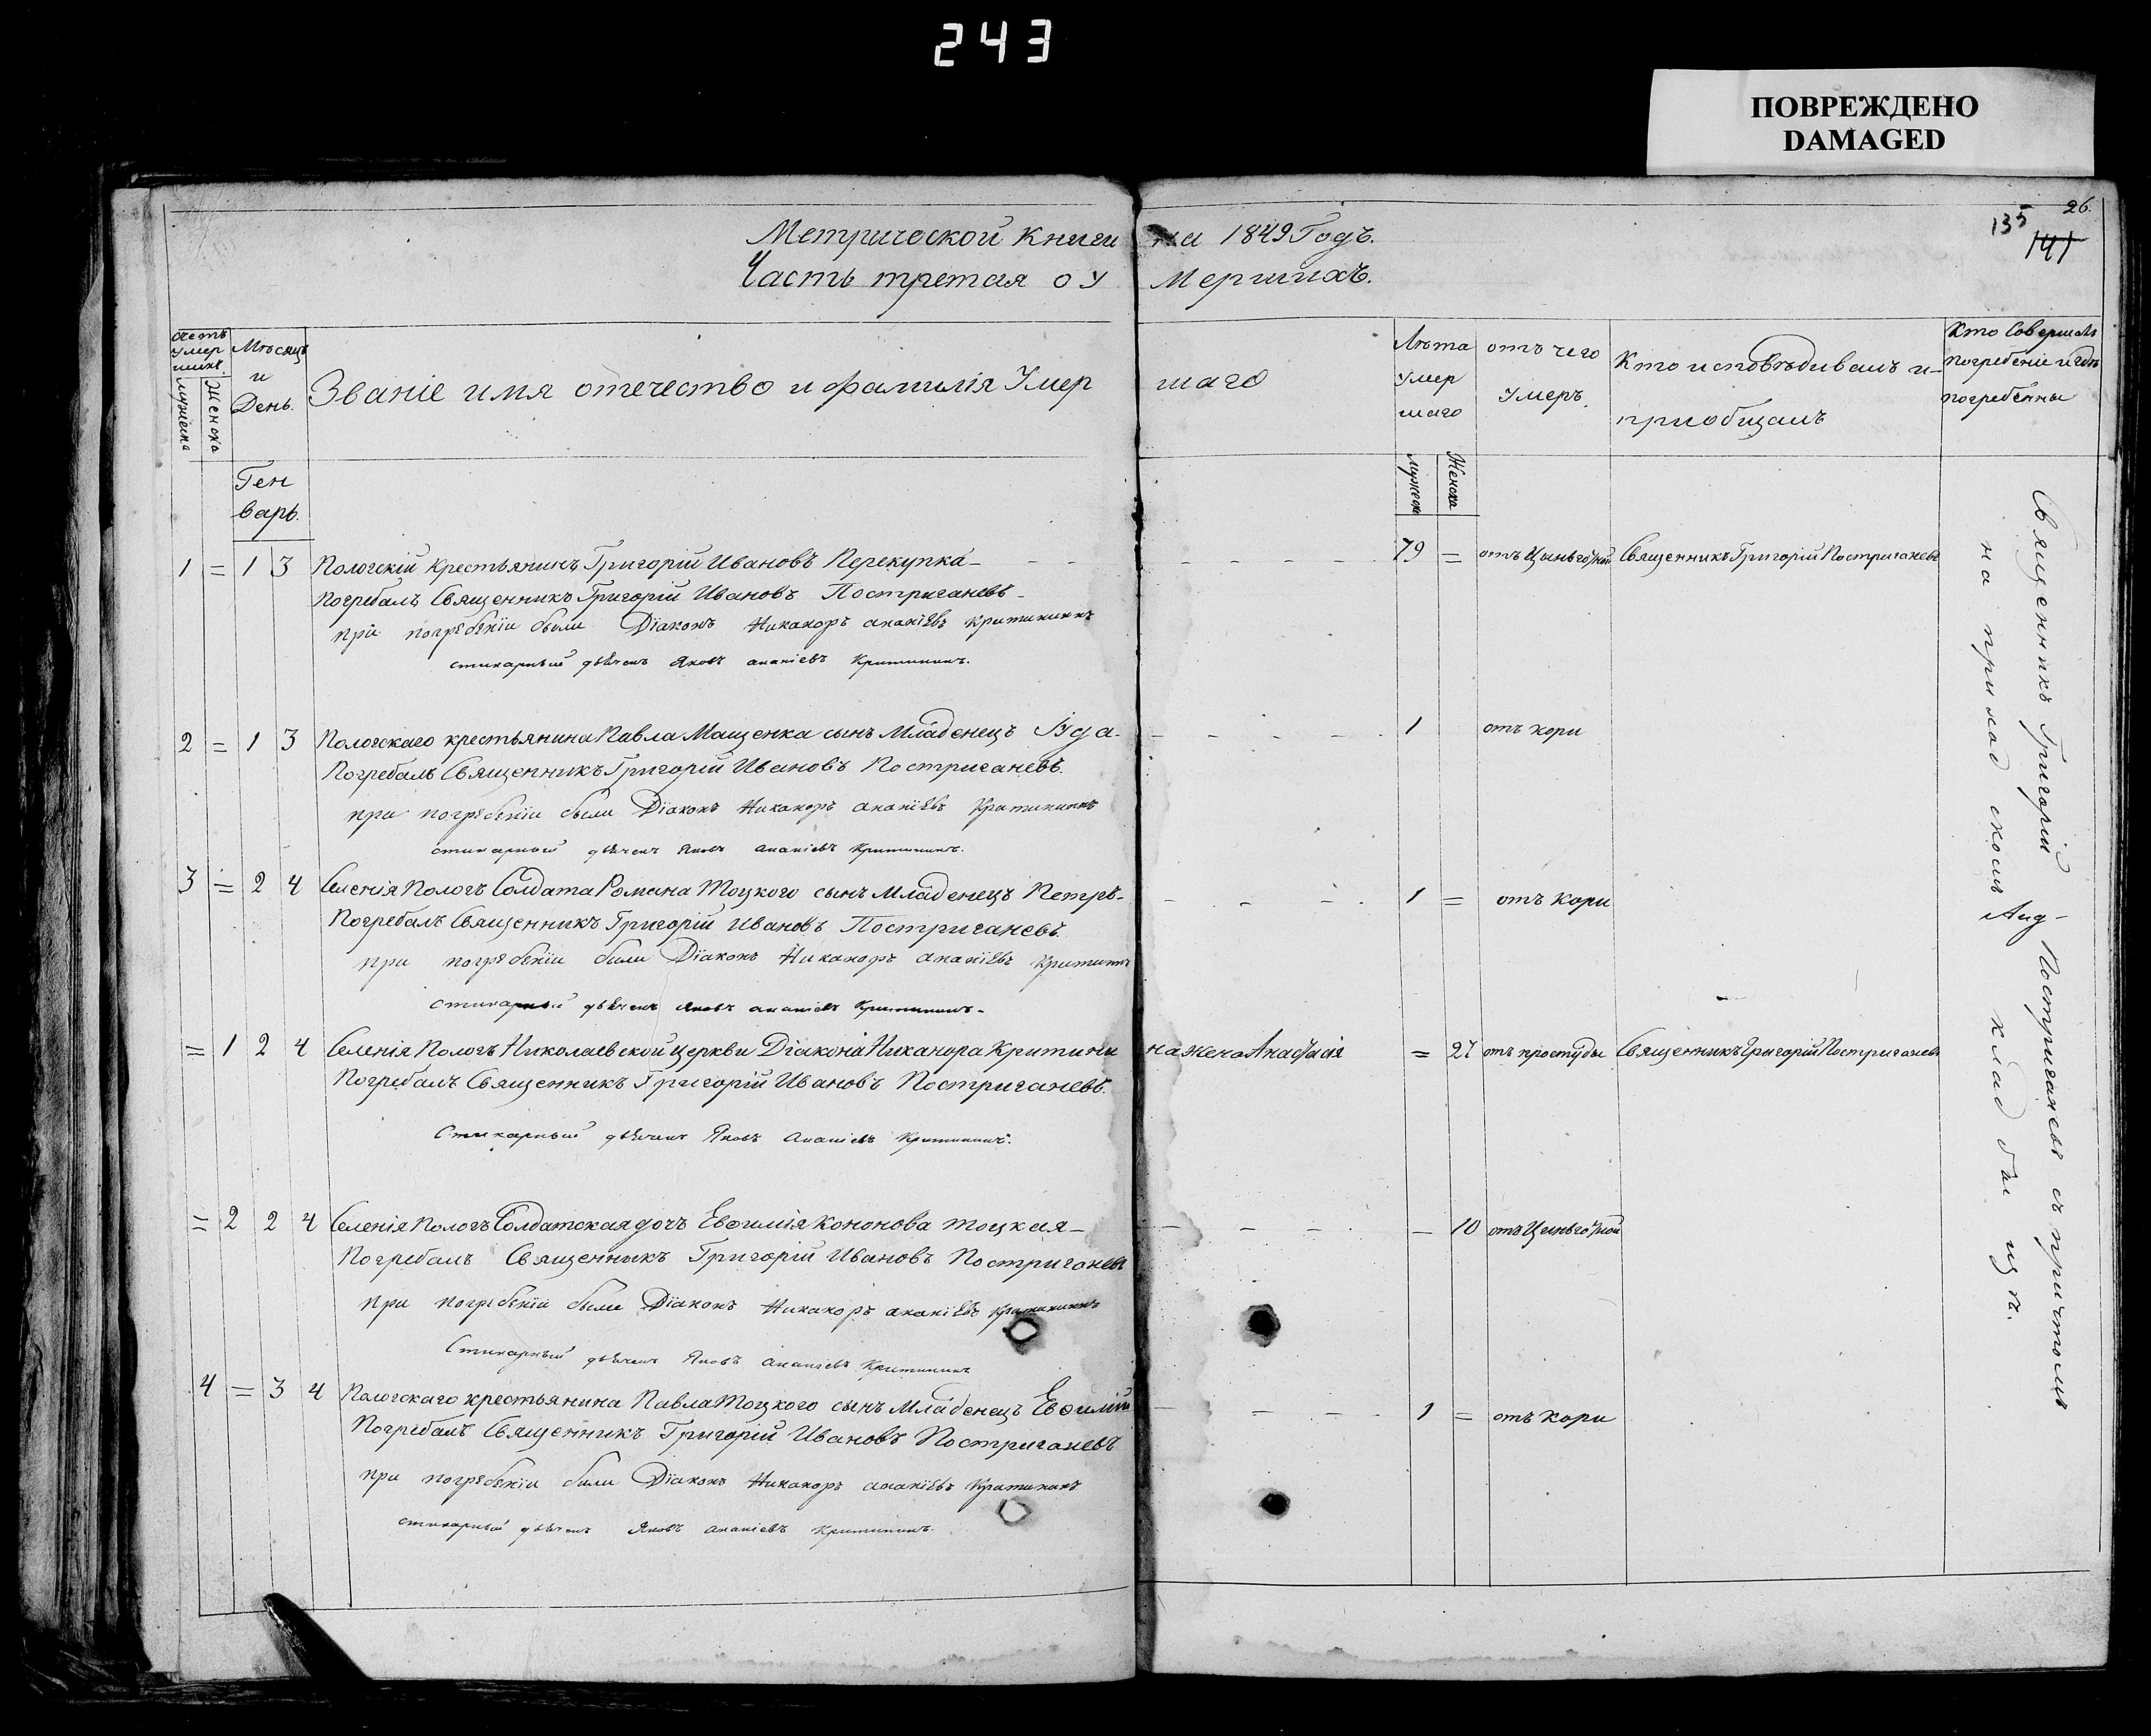 243
ПОВРЕЖДЕНО
DAMAGED
26.
135
141
Метрической книги на 1849 Годъ.
Часть третая о умершихъ.
счетъ умершихъ
мужеска
женска
Мѣсяцъ и День.
Званіе имя отечество и фамилія Умершаго
Лѣта Умершаго
мужеск
Женска
отъ чего Умеръ.
Кто исповѣдивалъ и приобщалъ
Кто Совершалъ погребеніе и гдѣ погребенны
Генварь.
1 = 1 3 Пологскій Крестьянинъ Григорій Ивановъ Перекупка 79 = отъ Цыньготной Священникъ Григорій Постриганевъ
Погребалъ Священникъ Григорій Ивановъ Постриганевъ
при погребеніи были Діаконъ Никаноръ ананіевъ Критининъ
стихарный дьячекъ Яковъ ананіевъ Критининъ.
2 = 1 3 Пологскаго крестьянина Павла Мащенка сынъ Младенецъ Іуда 1 отъ кори
Погребалъ Священникъ Григорій Ивановъ Постриганевъ.
при погребеніи были Діаконъ Никаноръ ананіевъ Критининъ
стихарный дьячекъ Яковъ ананіевъ Критининъ.
3 = 2 4 Селенія Пологъ Солдата Романа Тоцкого сынъ Младенецъ Петръ 1 = отъ Кори
Погребалъ Священникъ Григорій Ивановъ Постриганевъ.
при погребеніи были Діаконъ Никаноръ ананіевъ Критининъ
стихарный дьячекъ Яковъ ананіевъ Критининъ
= 1 2 4 Селенія Пологъ Николаевской церкви Діакона Никанора Критинина жена Анастасія = 27 отъ простуды Священникъ Григорій Постриганевъ
Погребалъ Священникъ Григорій Ивановъ Постриганевъ.
Стихарный дьячекъ Яковъ Ананіевъ Критининъ.
= 2 2 4 Селенія Пологъ Солдатская дочъ Евѳимія Кононова Тоцкая = 10 отъ Цыньготной
Погребалъ Священникъ Григорій Ивановъ Постриганевъ
при погребеніи были Діаконъ Никаноръ ананіевъ Критининъ
Стихарный дьячекъ Яковъ Ананіевъ Критининъ
4 = 3 4 Пологскаго крестьянина Павла Тоцкого сынъ Младенецъ Евѳимій 1 = отъ Кори
Погребалъ Священникъ Григорій Ивановъ Постриганевъ
при погребеніи были Діаконъ Никаноръ ананіевъ Критининъ
стихарный дьячекъ Яковъ ананіевъ Критининъ.
Священникъ Григорій Постриганевъ съ причтомъ
на приходскомъ кладбищѣ.